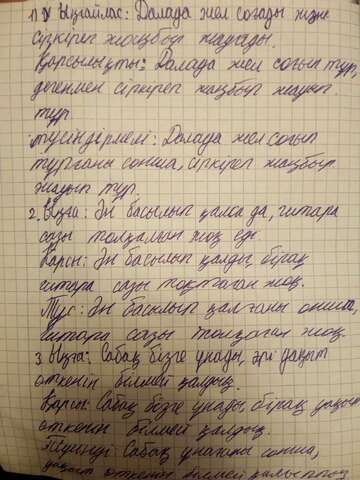 1) Ыңғайлас: Далада жел соғады және
сіркіреп жаңбыр жауады.
Қарсылықты: Далада жел соғып тұр,
дегенмен сіркіреп жаңбыр жауып
тұр.
түсіндірмелі: Далада жел соғып
тұрғаны сонша, сіркіреп жаңбыр
жауып тұр.
2. Ыңға: Ән басылып қалса да, гитара
сазы толқыған жоқ еді
Қарсы: Ән басылып қалды, бірақ
гитара сазы тоқтаған жоқ.
Түс: Ән басылып қалғаны сонша,
гитара сазы жоқ.
3. Ыңға: Сабақ бізге ұнады, әрі уақыт
өткенін білмей қалдық.
Қарсы: Сабақ бізге ұнады, бірақ уақыт
өткенін білмей қалдық.
Түсінді: Сабақ ұнағаны сонша,
уақыт өткенін білмей қалыппыз